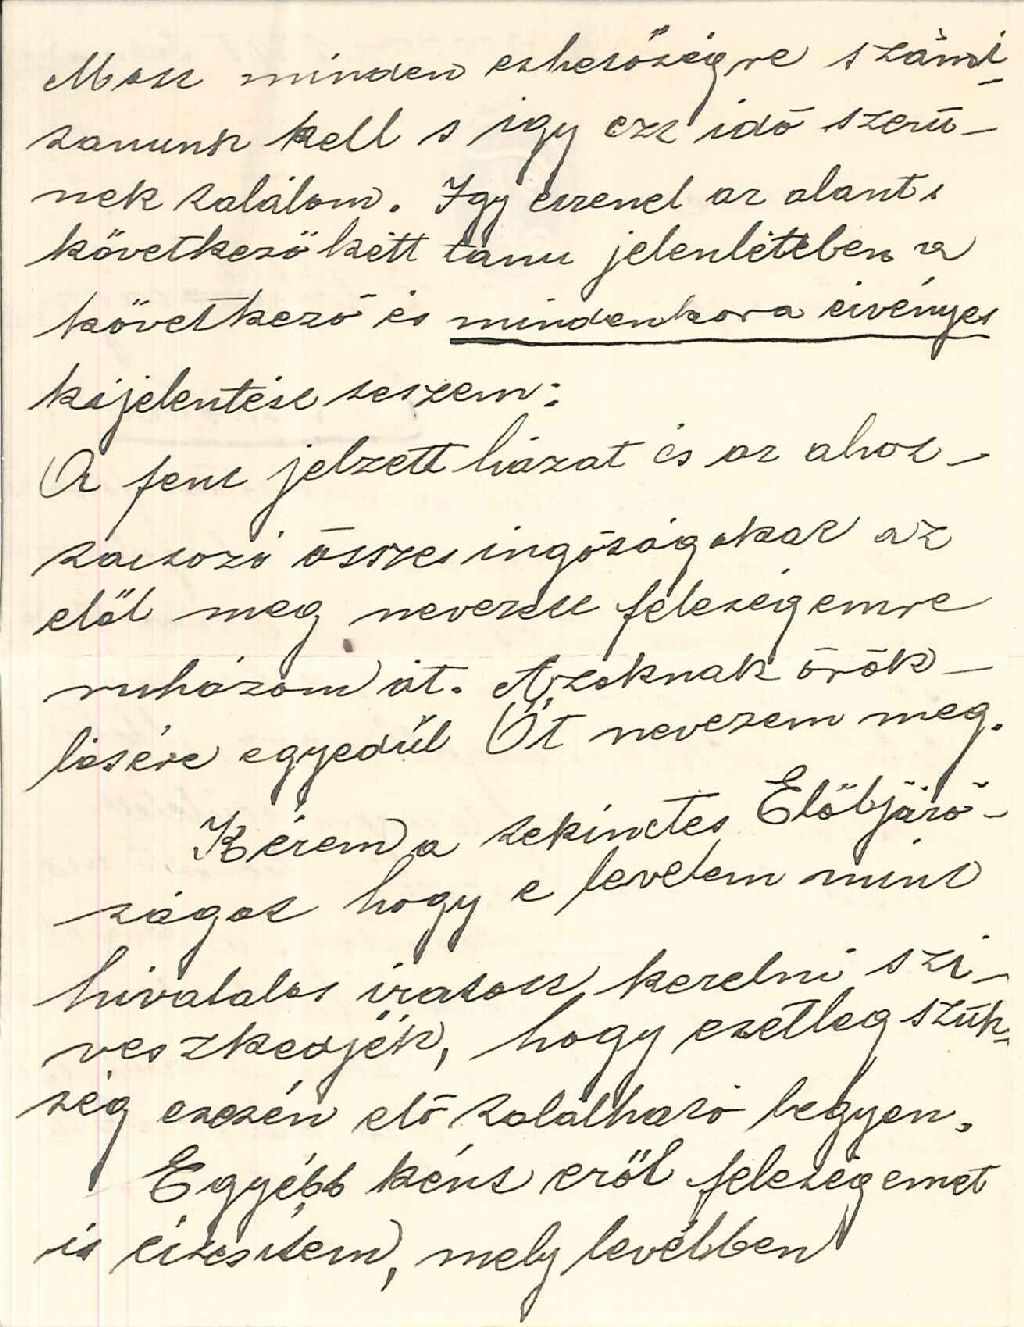 Most minden eshetőségre számí-
tanunk kell s igy ezt idő szerű-
nek találom. Igy ezennel az alant
következő kétt tanu jelenlétében a
következő és mindenkora érvényes
kijelentést teszem:
A fent jelzett házat és az ahoz-
tartozó összes ingóságokat az
elől meg nevezett feleségemre
ruházom át. Azoknak örök-
lésére egyedűl Őt nevezem meg.
Kérem a tekintetes Előljáró-
ságot hogy e levelem mint
hivatalos iratott kezelni szi-
veszkedjék, hogy esetleg szük-
ség esetén elő található legyen.
Egyébb ként erről feleségemet
is értesítem, mely levélben